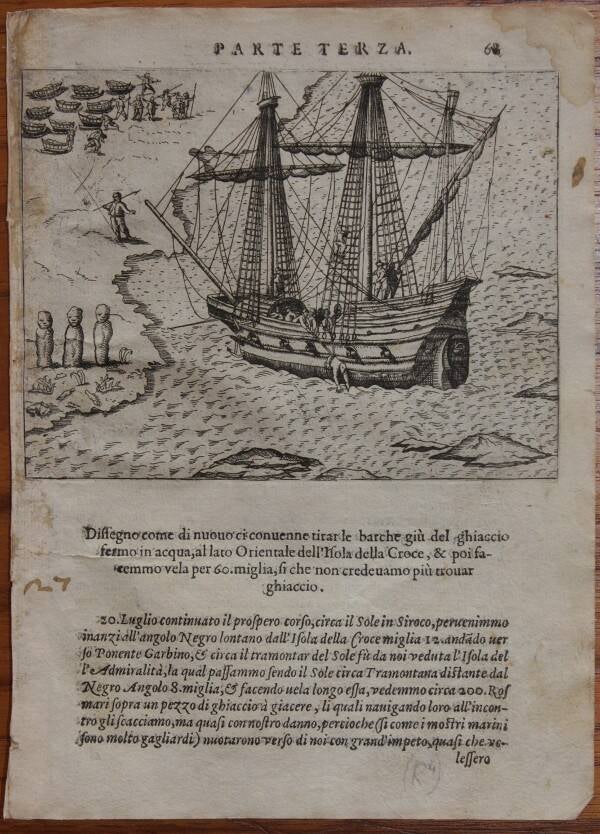 PARTE TERZA. 68
Dissegno come di nuouo ci conuenne tirar le barche giù del ghiaccio
fermo in acqua, al lato Orientale dell'Isola della Croce, & poi fa-
cemmo vela per 60. miglia, si che non credeuamo più trouar
ghiaccio.
20. Luglio continuato il prospero corso, circa il Sole in Siroco, peruenimmo
inanzi all'angolo Negro lontano dall'Isola della Croce miglia 12. andādo uer
so Ponente Garbino, & circa il tramontar del Sole fù da noi veduta l'Isola del
l'Admiralità, la qual passammo sendo il Sole circa Tramontana distante dal
Negro Angolo 8. miglia, & facendo uela longo essa, vedemmo circa 200. Ros
mari sopra un pezzo di ghiaccio à giacere, li quali nauigando loro all'incon-
tro gli scacciamo, ma quasi con nostro danno, percioche (si come i mostri marini
sono molto gagliardi) nuotarono verso di noi con grand'impeto, quasi che vo-
lessero